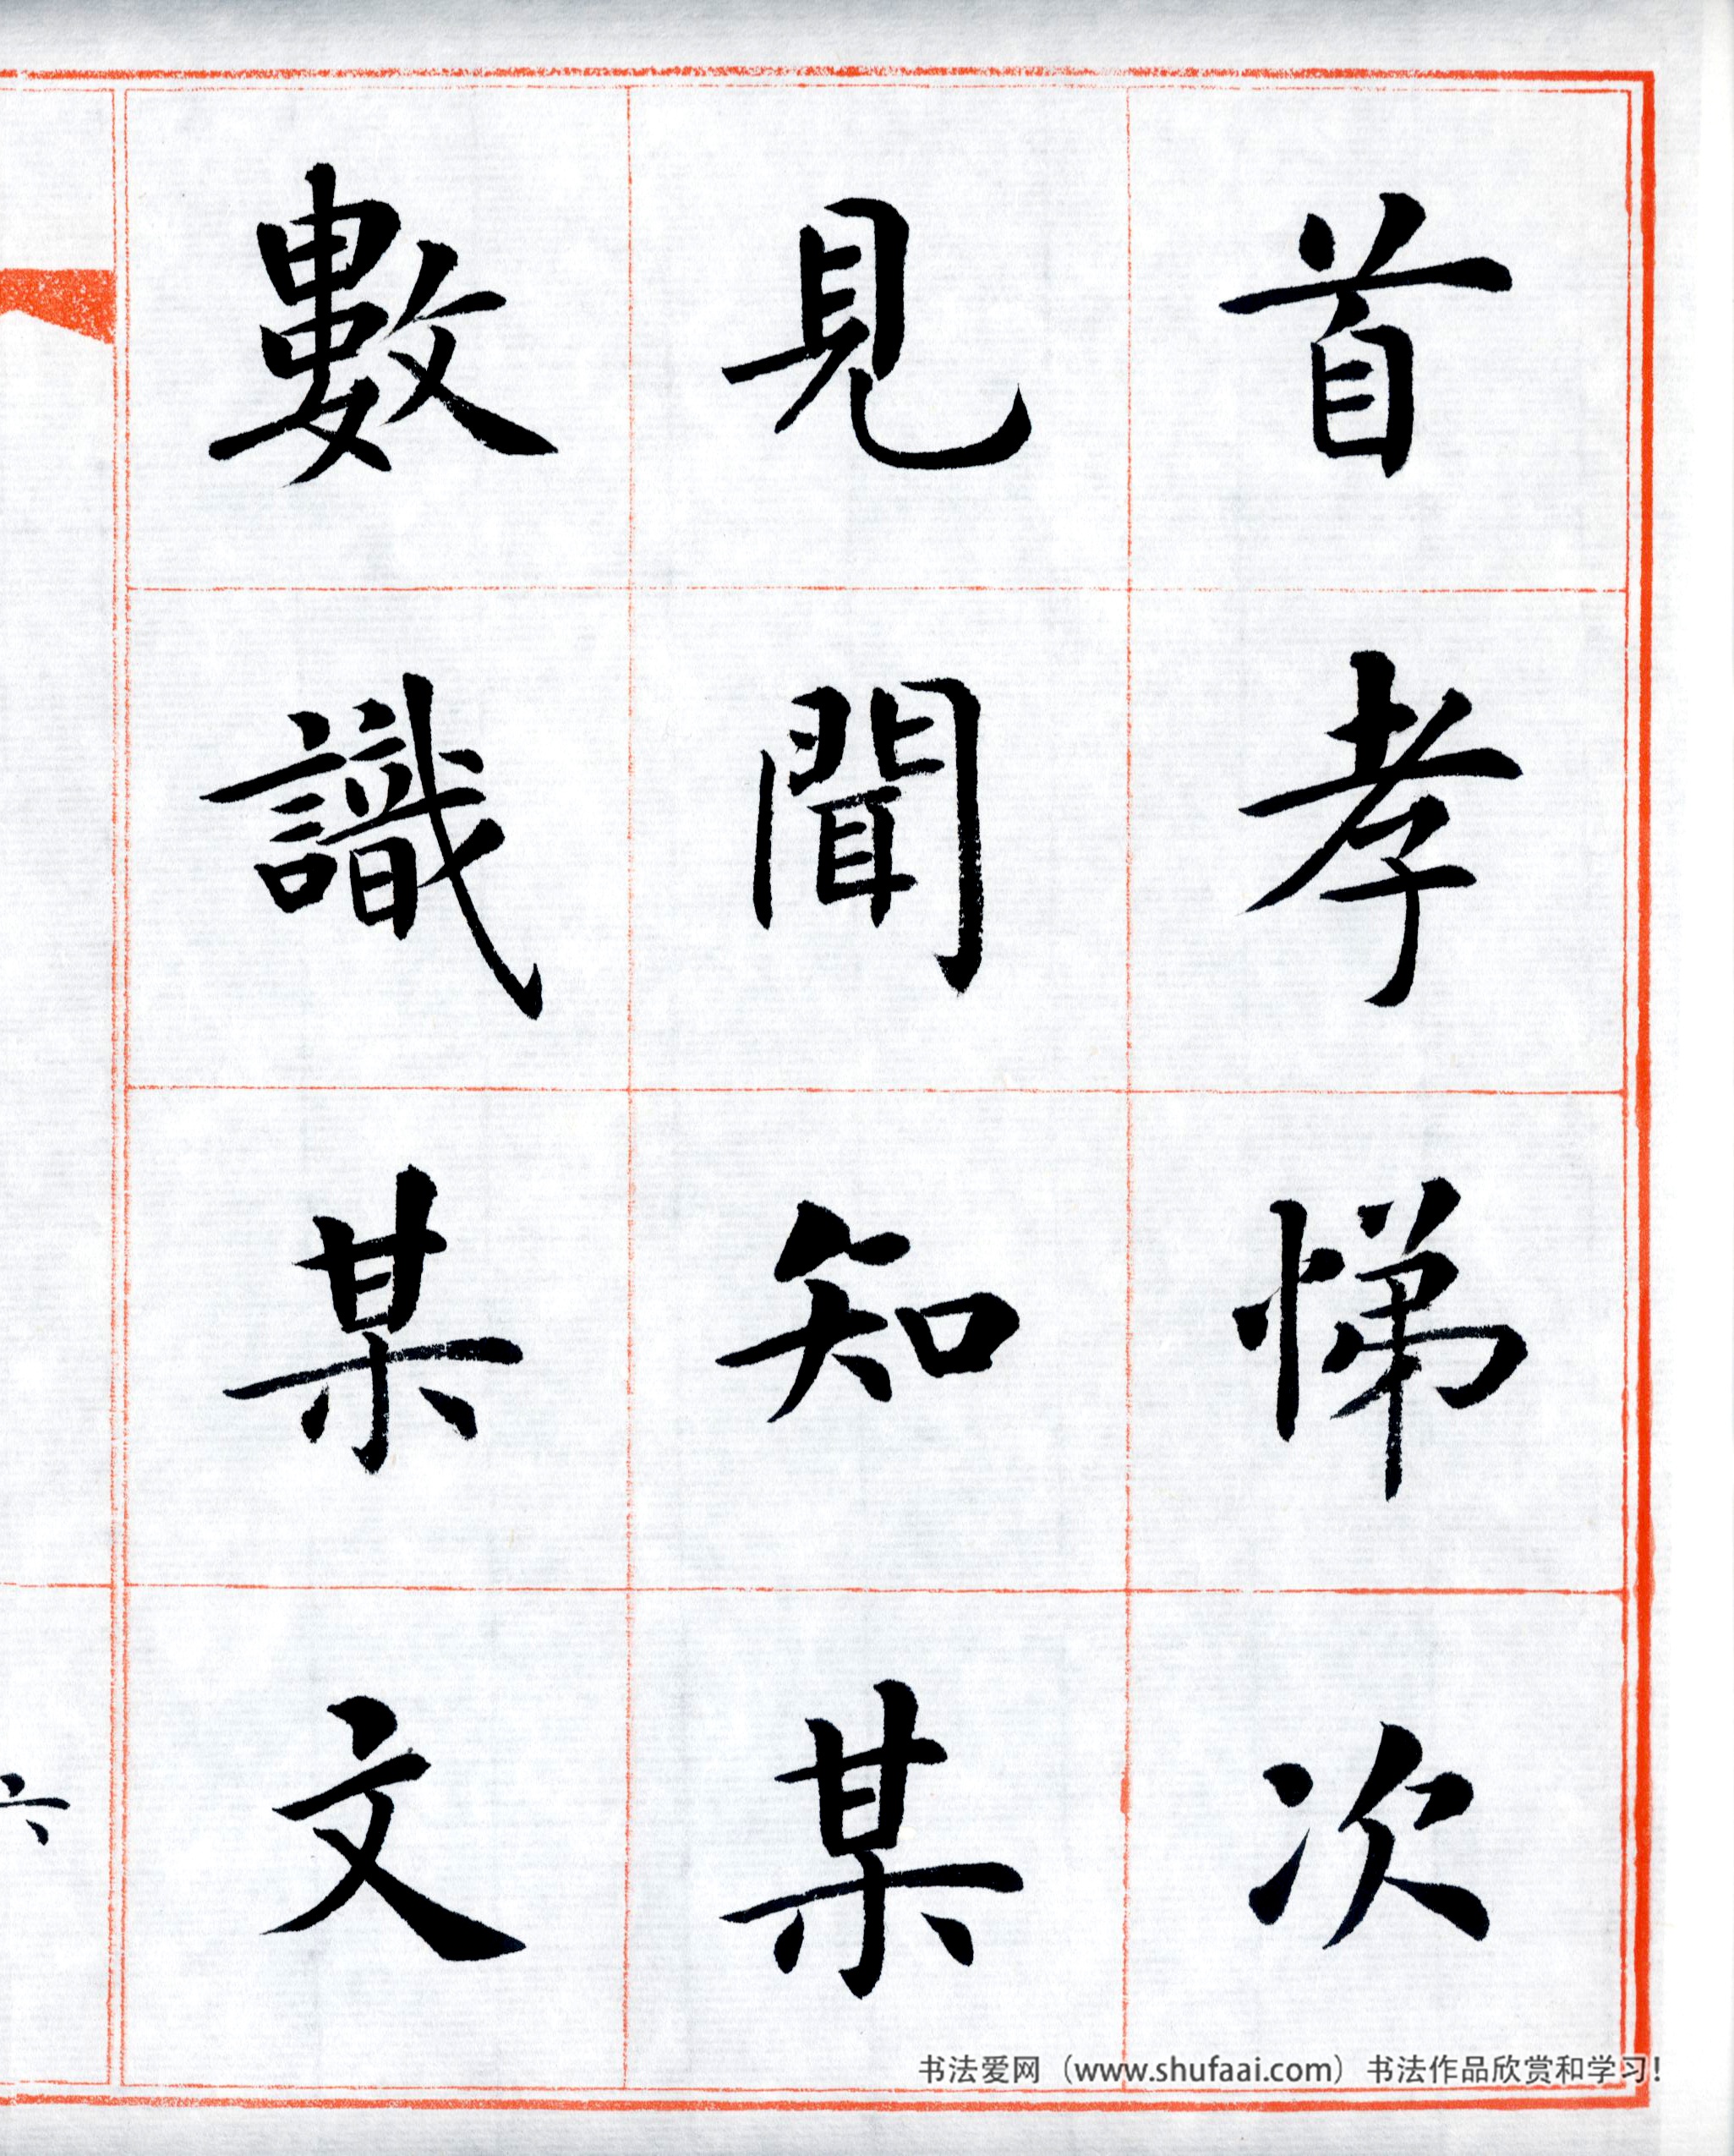 首孝悌次
見聞知某
數識某文
六
书法爱网（www.shufaai.com）书法作品欣赏和学习！